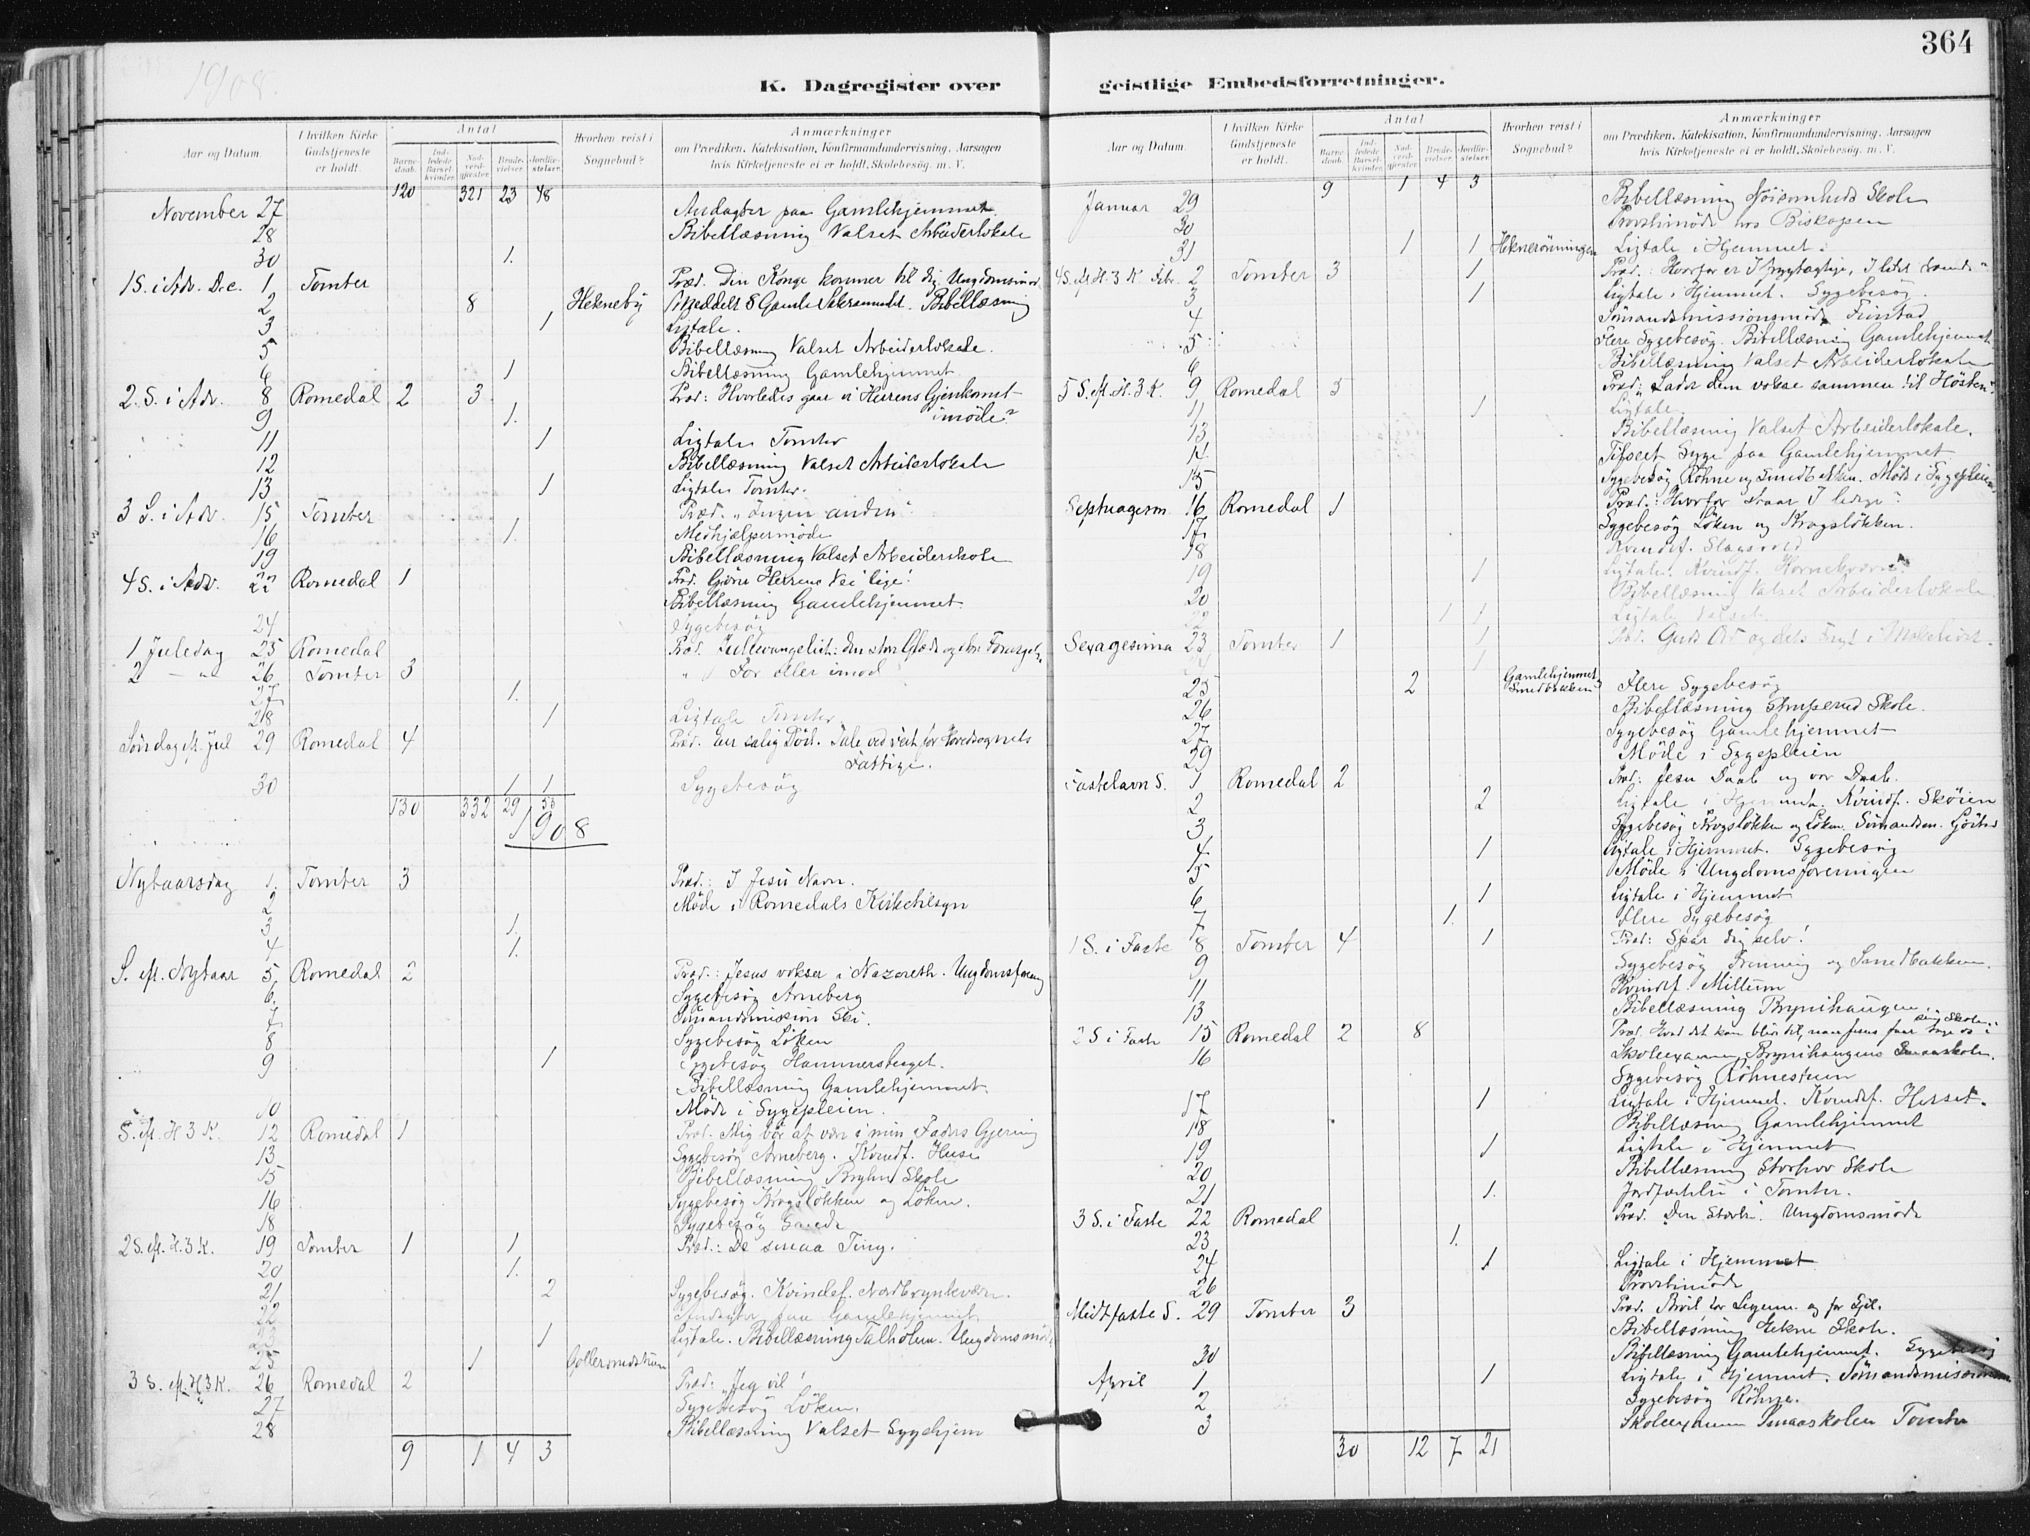 364
1908.
K. Dagregister over geistlige Embedsforretninger.
Aar og Datum.
I hvilken Kirke Gudstjeneste er holdt.
Antal
Barnedaab.
Indledede Barselkvinder.
Nadverdgjæster.
Brudevielser.
Jordfæstelser.
Hvorhen reist i Sognebud?
Anmærkninger
om Prædiken, Katekisation, Konfirmandundervisning, Aarsagen hvis Kirketjeneste ei er holdt, Skolebesøg m. V.
120 321 23 48
November 27 Andagter paa Gamlehjemmet
28 Bibellæsning Valset Arbeiderlokale
30 1.
1 S. i Adv. Dec. 1 Tomter Præd. Din Konge kommer til dig. Ungdomsmøde
2 8 Hekneby Meddelt 8 Gamle Sakramentet. Bibellæsning
3 1 Ligtale.
5 Bibellæsning Valset Arbeiderlokale.
6 1 Bibellæsning Gamlehjemmet
2. S. i Adv. 8 Romedal 2 3 Præd: Hvorledes gaar vi Herrens Gjenkomst
9 1. imøde?
11 1 Ligtale Tomter
12 Bibellæsning Valset Arbeiderlokale
13 1 Ligtale Tomter.
3 S. i Adv. 15 Tomter Præd. "Ingen anden"
16 1. Medhjælpermøde
19 Bibellæsning Valset Arbeiderskole
4 S. i Adv. 22 Romedal 1 Præd. Gjøre Herrens Vei lige!
Bibellæsning Gamlehjemmet
24 Sygebesøg
1 Juledag 25 Romedal Præd. Juleevangeliet: den store Glæde og den store
2 — " 26 Tomter 3 " For eller imod
27 1.
28 1 Ligtale Tomter
Søndag eft. Jul 29 Romedal 4 Præd. En salig Død. Tale ved for Hovedsognets
Fattige.
30 1 1 Sygebesøg
130 332 29 53
1908
Nytaarsdag 1. Tomter 3 Præd.: I Jesu Navn.
2 Møde i Romedals Kirketilsyn
3 1.
4 1.
S. eft. Nytaar 5 Romedal 2 Præd.: Jesus vokser i Nazareth. Ungdomsforening
6. Sygebesøg Arneberg
7 Sømandsmission Ski.
8 Sygebesøg Løken
9 1 Sygebesøg Hammersberget.
Bibellæsning Gamlehjemmet.
10 Møde i Sygepleien.
S. eft. H 3 K. 12 Romedal 1 Præd. Mig bør at være i min Faders Gjerning
13 Sygebesøg Arneberg. Kvindf. Huse
15 Bibellæsning Bryhni Skole
16 Sygebesøg Krogsløkken og Løken.
18 Sygebesøg
2 S. eft. H. 3 K. 19 Tomter 1 1 Præd.: De smaa Ting.
20 1.
21 2 Sygebesøg. Kvindef. Nordbrynkvern.
22 Andagter paa Gamlehjemmet
23 1 Ligtale. Bibellæsning Talholen. Ungdomsmøde
25 1
3 S. eft. H 3 K. 26 Romedal 2 Præd: "Jeg vil!
27 Sygebesøg Løken.
28 Bibellæsning Valset Sygehjem
9 1 4 3
Aar og Datum.
I hvilken Kirke Gudstjeneste er holdt.
Antal
Barnedaab.
Indledede Barselkvinder.
Nadverdgjæster.
Brudevielser.
Jordfæstelser.
Hvorhen reist i Sognebud?
Anmærkninger
om Prædiken, Katekisation, Konfirmandundervisning, Aarsagen hvis Kirketjeneste ei er holdt, Skolebesøg m. V.
9 1 4 3
Januar 29 Bibellæsning Nøisomheds Skole
30 Provstimøde hos Biskopen
31 1 1 Heknerønningen Ligtale i Hjemmet
4 S. eft. H. 3 K. Febr. 2 Tomter 3 1 Præd.: Hvorfor er I frygtagtige, I lidet
3 1 Ligtale i Hjemmet. Sygebesøg.
4 Sømandsmissionsmøde Finstad
5 Flere Sygebesøg. Bibellæsning Gamlehjemmet
6 Bibellæsning Valset Arbeiderlokale
5 S. eft. H. 3 K. 9 Romedal 3 Præd: "Lader dem vokse sammen til Høsten".
11 1 Ligtale.
13 Bibellæsning Valset Arbeiderlokale.
14 Tilseet Syge paa Gamlehjemmet
15 Sygebesøg Røhne og Smedbakken. Møde i Sygepleien.
Septuagesm. 16 Romedal 1 Præd.: Hvorfor staar I ledige?
17 Sygebesøg Løken og Krogsløkken.
18 Kvindef. Slagsvold
19 1 Ligtale. Kvindf. Hornekvern
20 Bibellæsning Valset Arbeiderlokale
22 1 1 Ligtale Valset
Sexagesima 23 Tomter 1 1 Præd. Guds Ord og dets Frugt i
24 1
25 2 Gamlehjemmet Smedbakken Flere Sygebesøg
26 Bibellæsning Skole.
27 Sygebesøg Gamlehjemmet
29 Møde i Sygepleien
Fastelavn S. 1 Romedal 2 Præd: Jesu Daab og vor Daab.
2 2 Ligtale i Hjemmet. Kvindf. Skøien
3 Sygebesøg Krogsløkken og Løken. Sømandsm.
4 1 Ligtale i Hjemmet. Sygebesøg
5 Møde i Ungdomsforeningen
6 1 Ligtale i Hjemmet
7 1. Flere Sygebesøg
1 S. i Faste 8 Tomter 4 1 Præd: Spar dig selv!
9 Sygebesøg Frenning og Smedbakken.
11 Kvindef. Millum
13 Bibellæsning Brynihaugen
2 S. i Faste 15 Romedal 2 8 Præd. Hvad det kan blive til, naar Jesus faar tage os i sin Skole.
16 Skoleexamen Brynihaugens Smaaskole.
Sygebesøg Røhnestuen
17 1 Ligtale i Hjemmet. Kvindef. Herset.
18 Bibellæsning Gamlehjemmet
19 1 Ligtale i Hjemmet
20 Bibellæsning Storhov Skole
21 1. Jordfæstelse i Tomter.
3 S. i Faste 22 Romedal Præd. Den Stærke. Ungdomsmøde
23 1.
24 1 Ligtale i Hjemmet
26 Provstimøde
Midtfaste S. 29 Tomter 3 Præd. Brød for Legem. og for Sjæl.
Bibellæsning Hekne Skole.
30 Bibellæsning Gamlehjemmet. Sygebesøg
April 1 1 Ligtale i Hjemmet. Sømandsmission
2 Sygebesøg Røhne.
3 Skoleexamen Smaaskolen Tomter
30 12 7 21